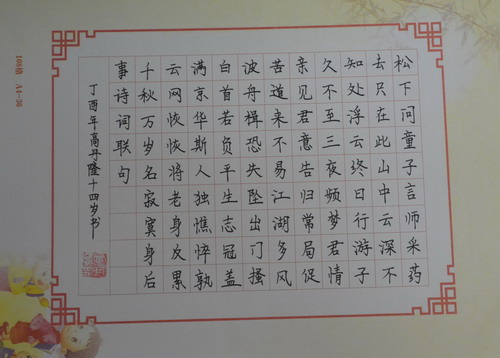 松下问童子言师采药
去只在此山中云深不
知处浮云终日行游子
久不至三夜频梦君情
亲见君意告归常局促
苦道来不易江湖多风
波舟楫恐失坠出门搔
白首若负平生志冠盖
满京华斯人独憔悴孰
云网恢恢将老身反累
千秋万岁名寂寞身后
事诗词联句
丁酉年高丹隆十四岁书
108格 A4-36